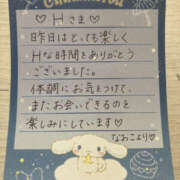 Cinnamoroll
♡Hさま♡
昨日はとっても楽しく
Hな時間をありがとう
ございました。
体調にお気をつけて、
またお会いできるのを
楽しみにしています♡
なおこより♡